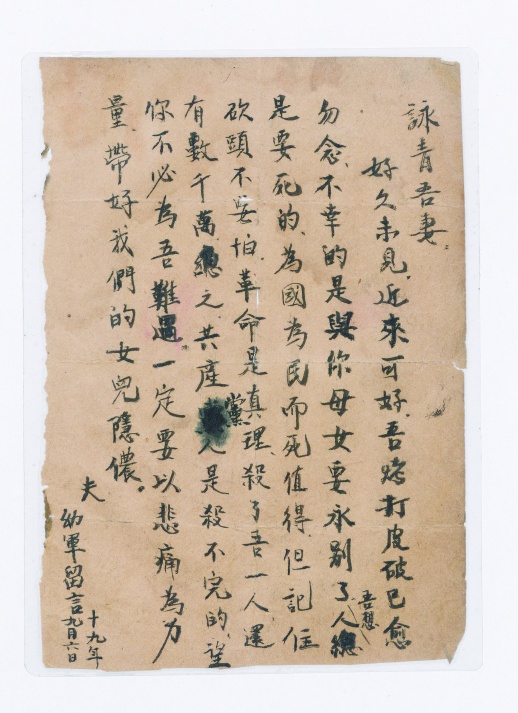 詠青吾妻.
好久未見.近來可好.吾烤打皮破已愈
勿念.不幸的是與你母女要永别了.吾想人總
是要死的.為國為民而死值得.但記住
砍頭不要怕.革命是真理.殺了吾一人還
有數千萬.總之共產黨人是殺不完的.望
你不必為吾難過一定要以悲痛為力
量.帶好我們的女兒隱儂。
夫
幼軍留言
十九年
九月六日